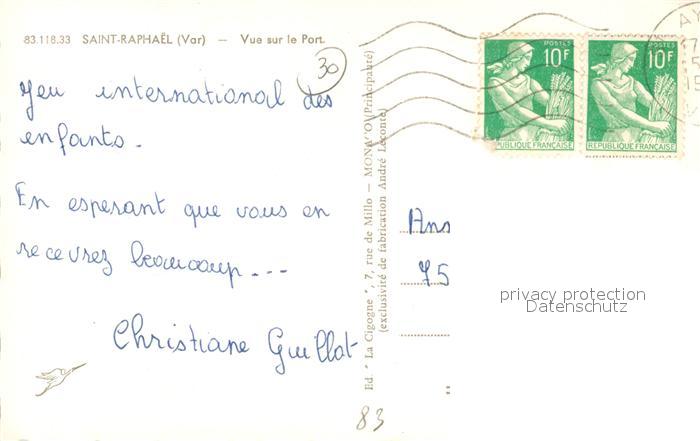 83.118.33 SAINT-RAPHAËL (Var) — Vue sur le Port.
30
Jeu international des
enfants.
En esperant que vous en
recevrez beaucoup...
Christiane Guillot
Ed. "La Cigogne", 7, rue de Millo — MONACO (Principauté)
(exclusivité de fabrication André Leconte)
POSTES 10F
RÉPUBLIQUE FRANÇAISE
POSTES 10F
RÉPUBLIQUE FRANÇAISE
Ans
75
privacy protection
Datenschutz
83